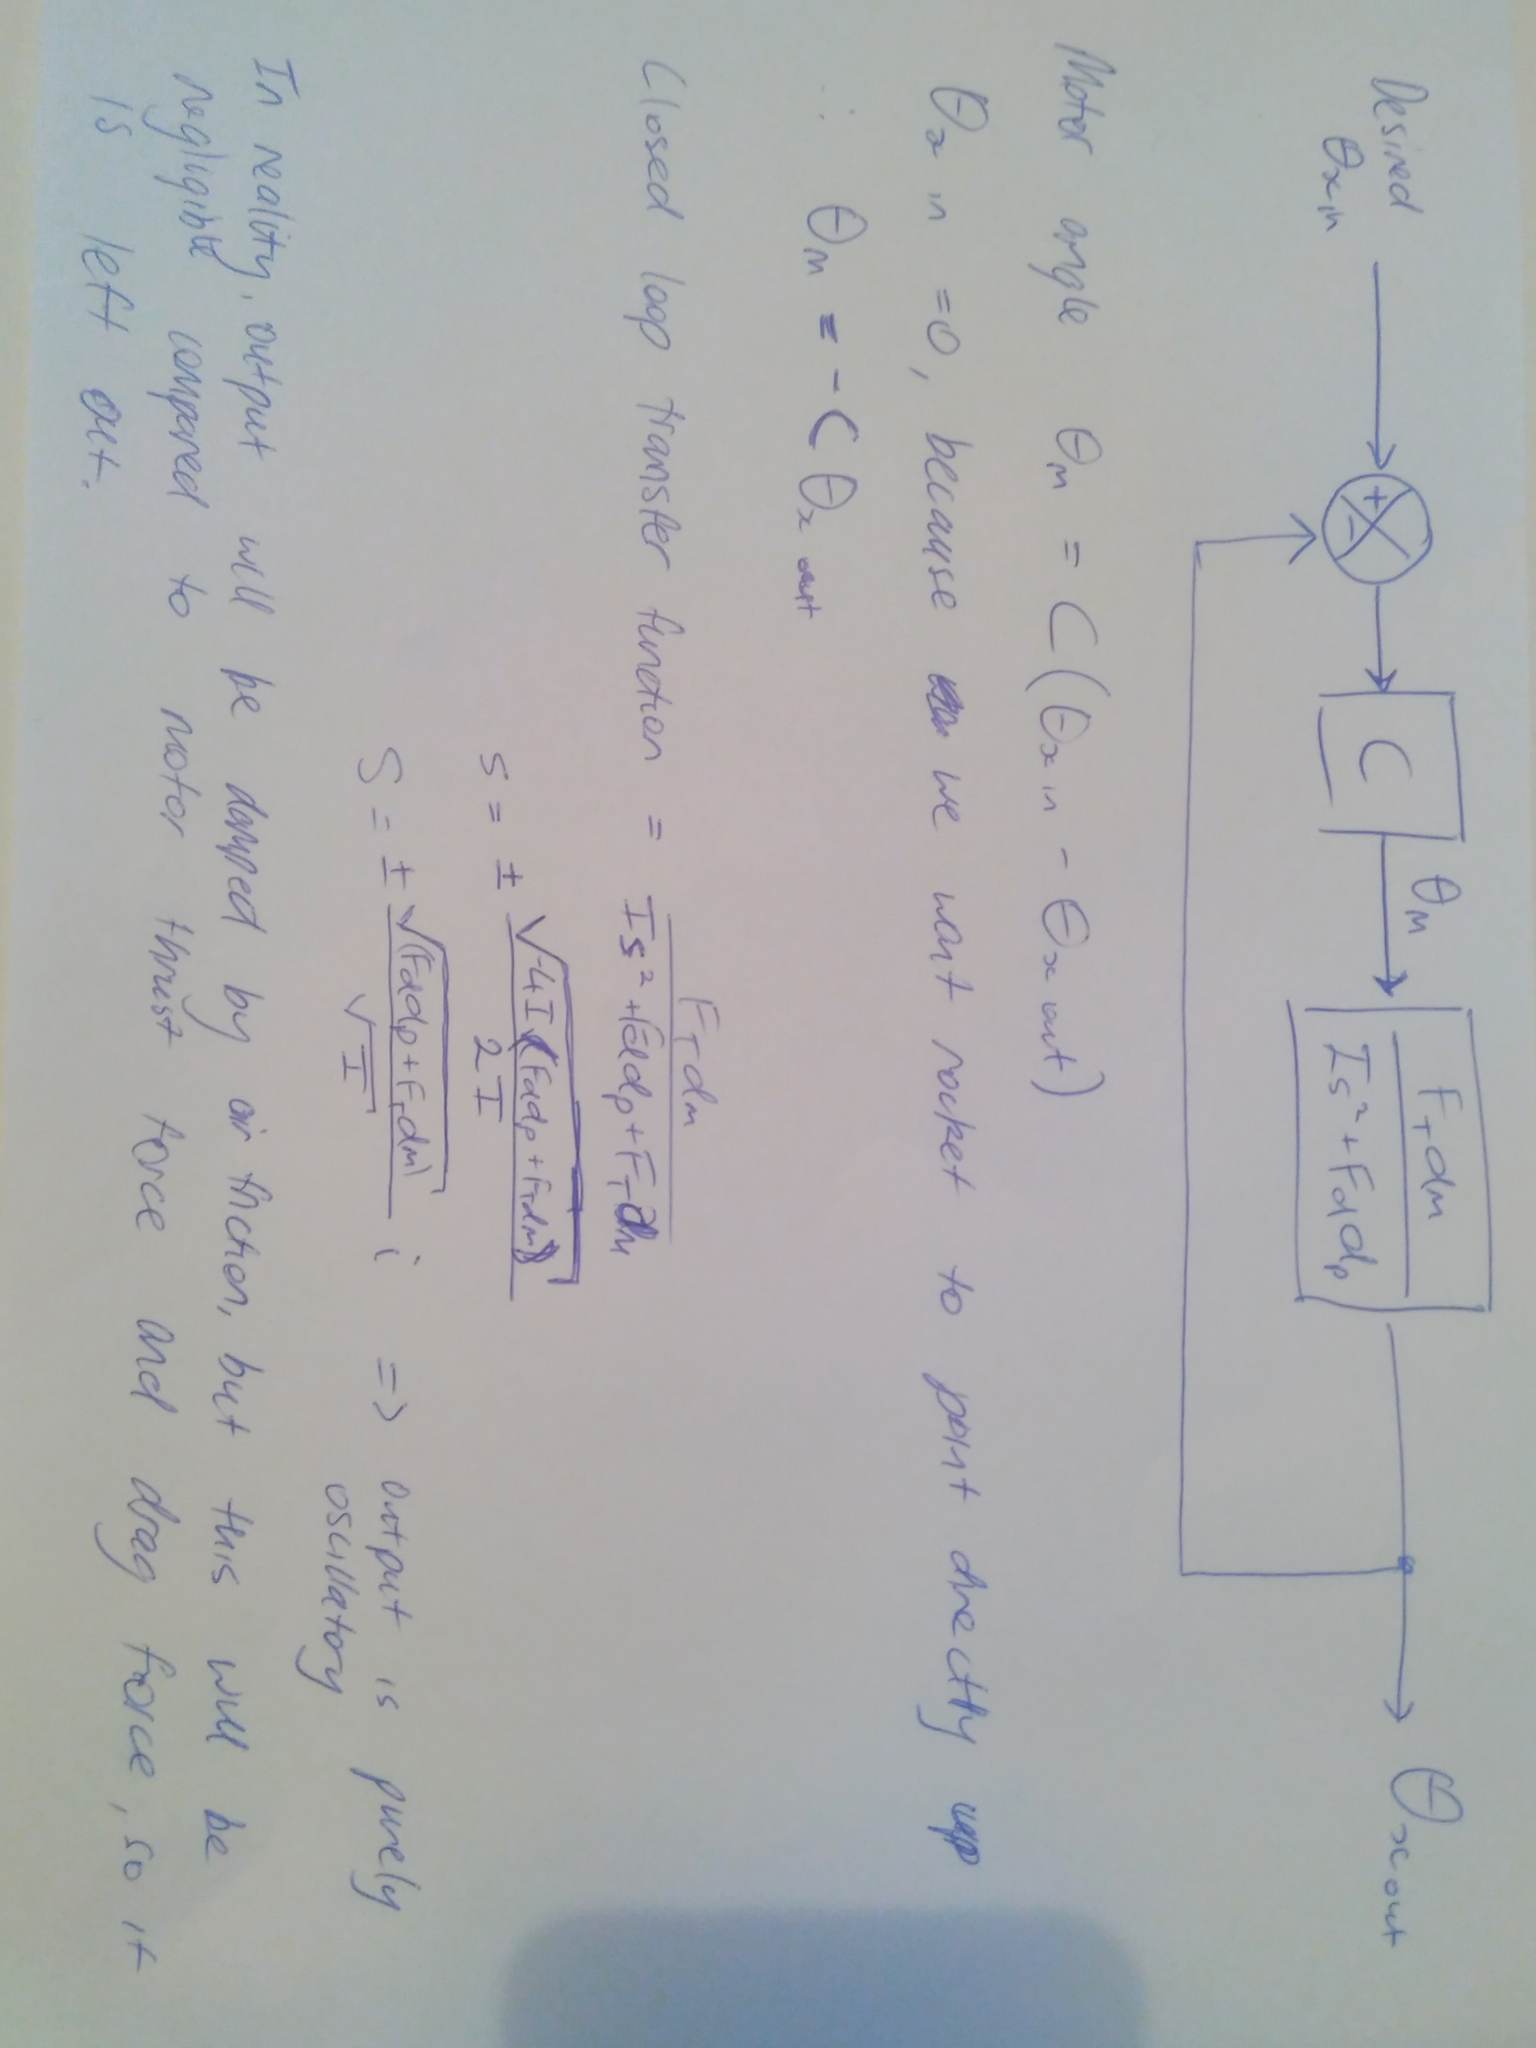 Desired
θx in
+
-
C
θM
FT dm
Is² + Fd dp
θx out
Motor angle θM = C(θx in - θx out)
θx in = 0, because we want rocket to point directly up
∴ θM = - C θx out
Closed loop transfer function = FT dm
Is² + Fd dp + FT dm
s = ± √-4I(Fd dp + FT dm)
2I
S = ± √(Fd dp + FT dm) i => output is purely
√I
oscillatory
In reality, output will be damped by air friction, but this will be
negligible compared to motor thrust force and drag force, so it
is left out.